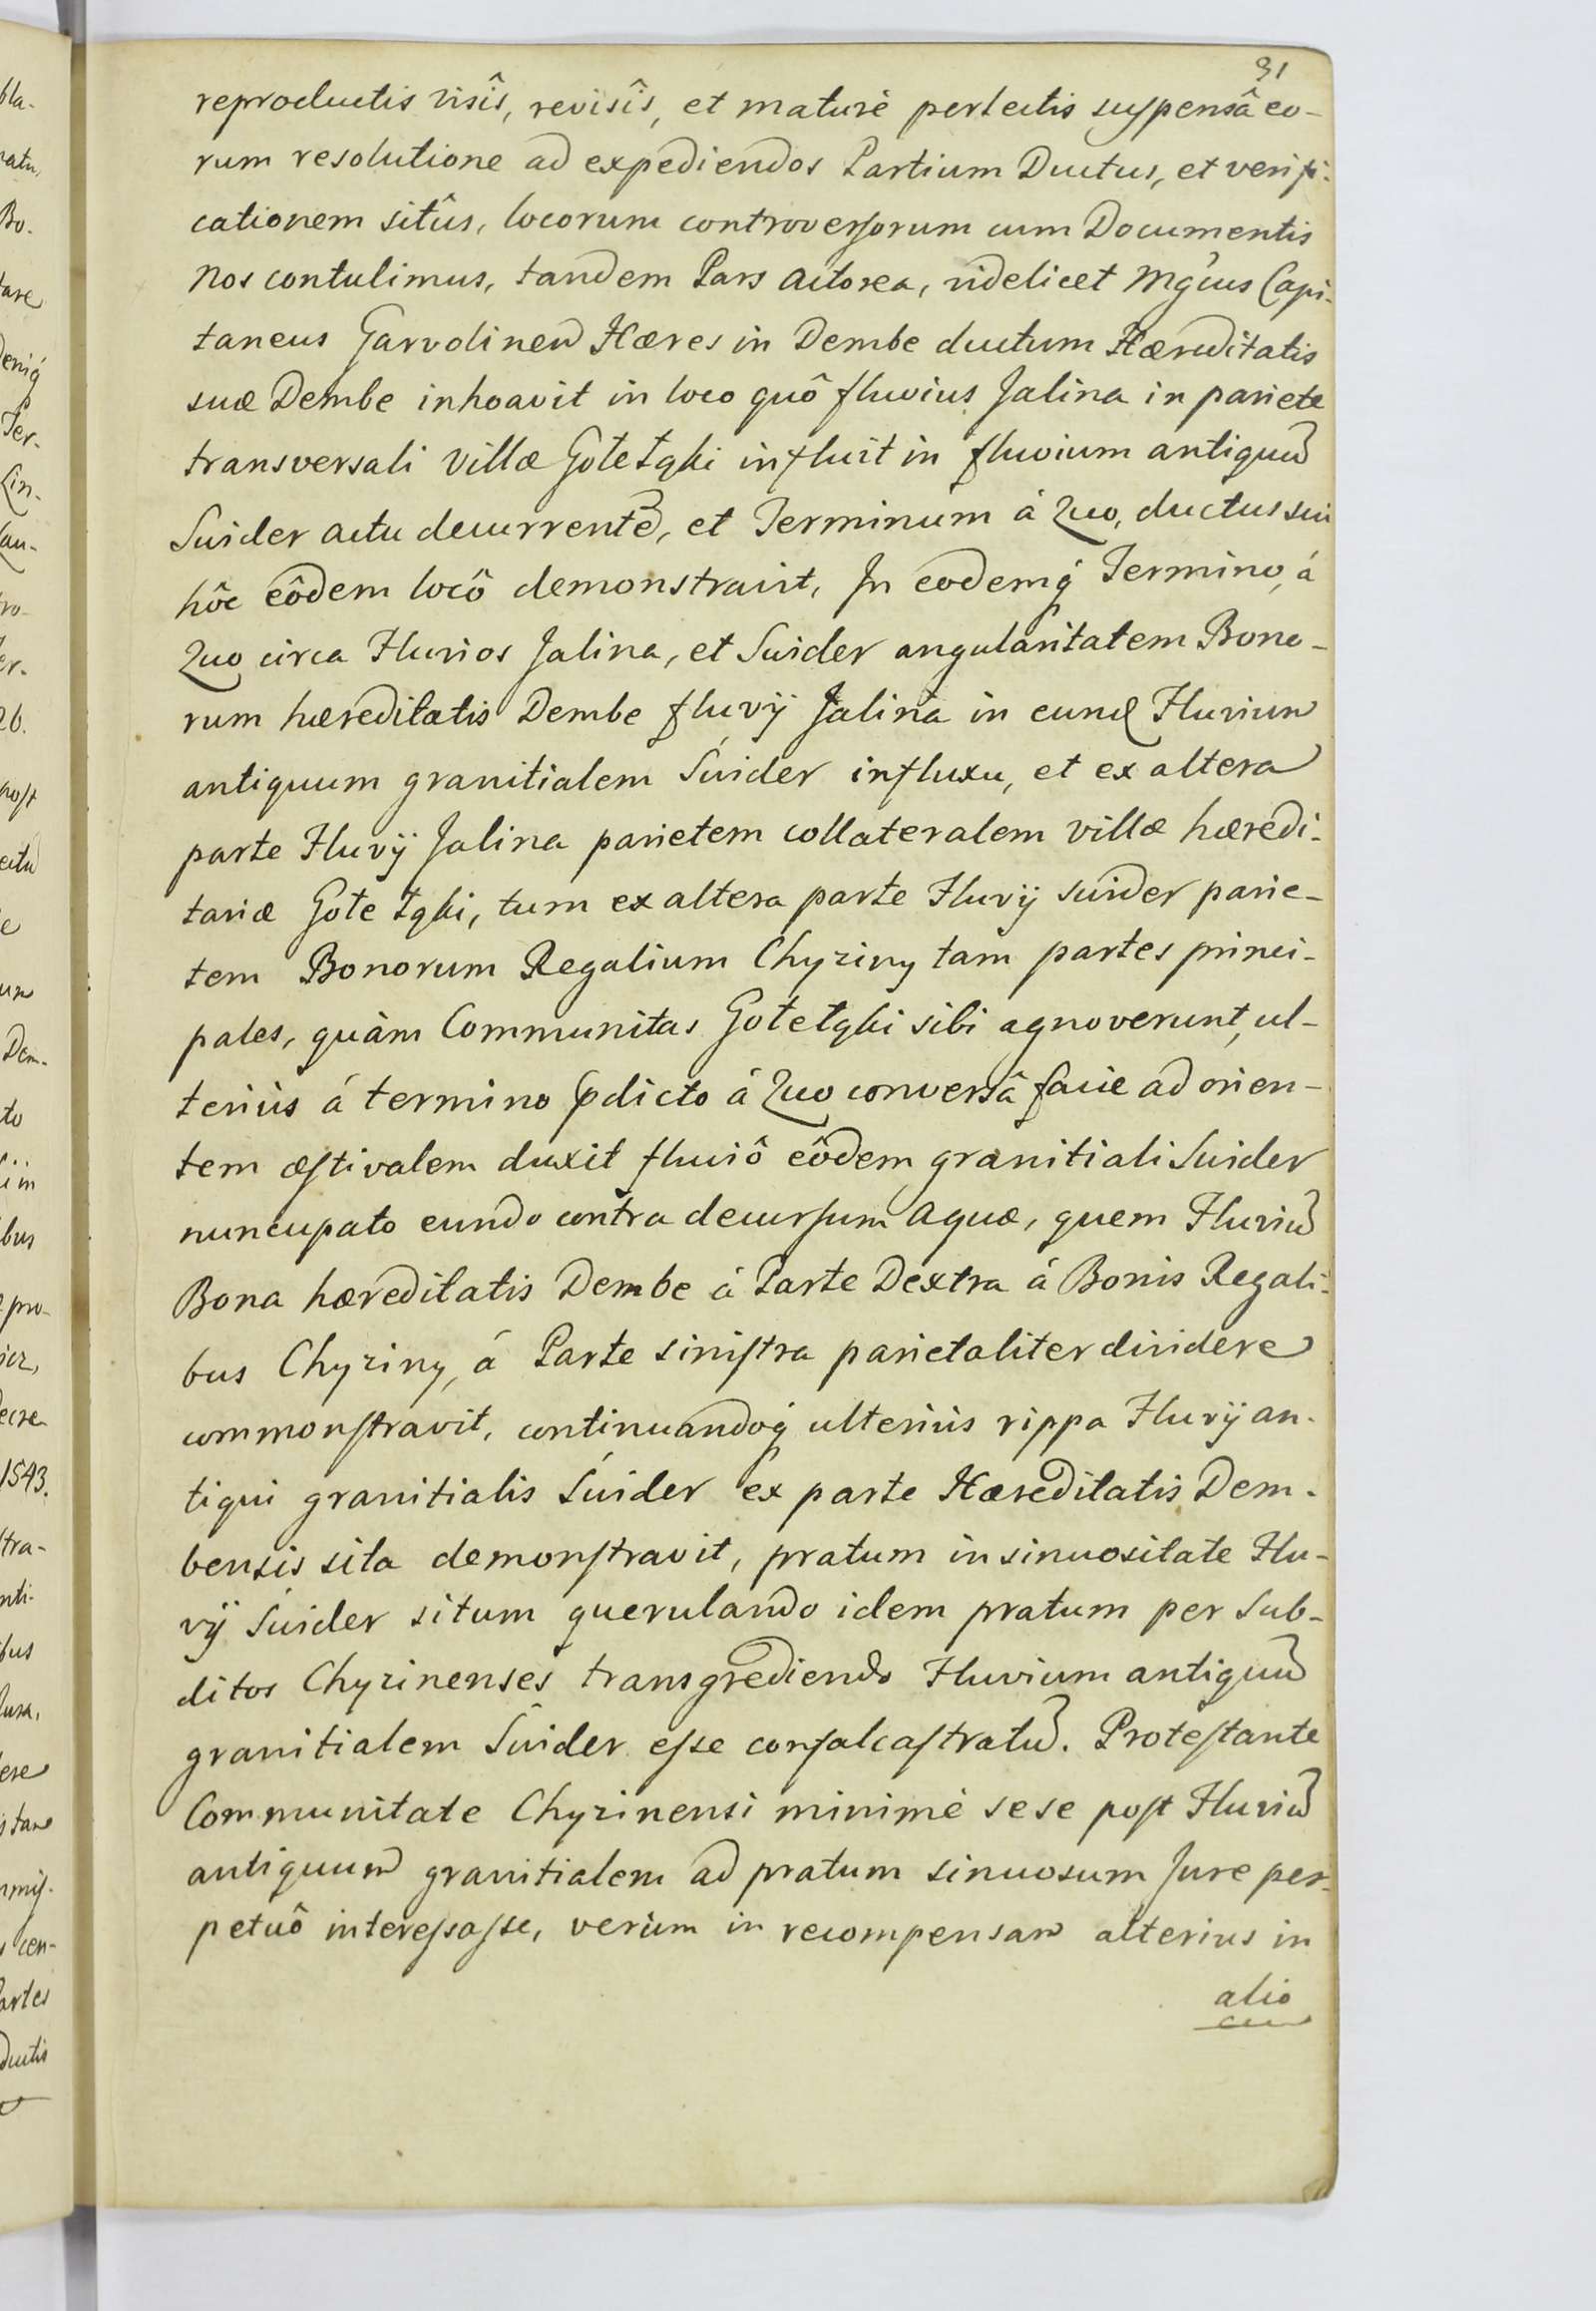 31
reproductis visîs, revisîs, et maturè perlectis suspensâ eo-
rum resolutione ad expediendos Partium Ductus, et verifi-
cationem sitûs, locorum controversorum cum Documentis
Nos contulimus, tandem Pars Actorea, videlicet Mgcus Capi-
taneus Garvolinen Hæres in Dembe ductum Hæreditatis
suæ Dembe inhoavit in loco quô fluvius Jalina in pariete
transversali villæ Gołełąki influit in fluvium antiquũ
Swider actu decurrentẽ, et Terminum á Quo, ductus sui
hôc eôdem locô demonstravit, In eodemq́ Termino, á
Quo circa Fluvios Jalina, et Swider angularitatem Bono-
rum hæreditatis Dembe fluvÿ Jalina in eund Fluvium
antiquum granitialem Świder influxu, et ex altera
parte Fluvÿ Jalina parietem collateralem villæ hæredi-
tariæ Gołe łąki, tum ex altera parte Fluvÿ Swider parie-
tem Bonorum Regalium Chyziny tam partes princi-
pales, quàm Communitas Gołełąki sibi agnoverunt, ul-
teriùs á termino pdicto á Quo conversâ facie ad orien-
tem æstivalem duxit fluviô eôdem granitiali Swider
nuncupato eundo contra decursum Aquæ, quem Fluviũ
Bona hæreditatis Dembe á Parte Dextra á Bonis Regali-
bus Chyziny, á Parte sinistra parietaliter dividere
commonstravit, continuandoq́ ulteriùs rippa Fluvÿ an-
tiqui granitialis Świder ex parte Hæreditatis Dem-
bensis sita demonstravit, pratum in sinuositate Flu-
vÿ Świder situm querulando idem pratum per Sub-
ditos Chyzinenses transgrediendo Fluvium antiquũ
granitialem Świder esse confalcastratũ. Protestante
Communitate Chyzinensi minimè sese post Fluviũ
antiquum granitialem ad pratum sinuosum Jure per-
petuô interessasse, verùm in recompensam alterius in
alio